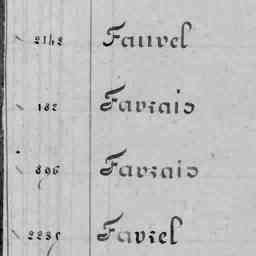 2142 Fauvel
182 Favrais
896 Favrais
2235 Favrel